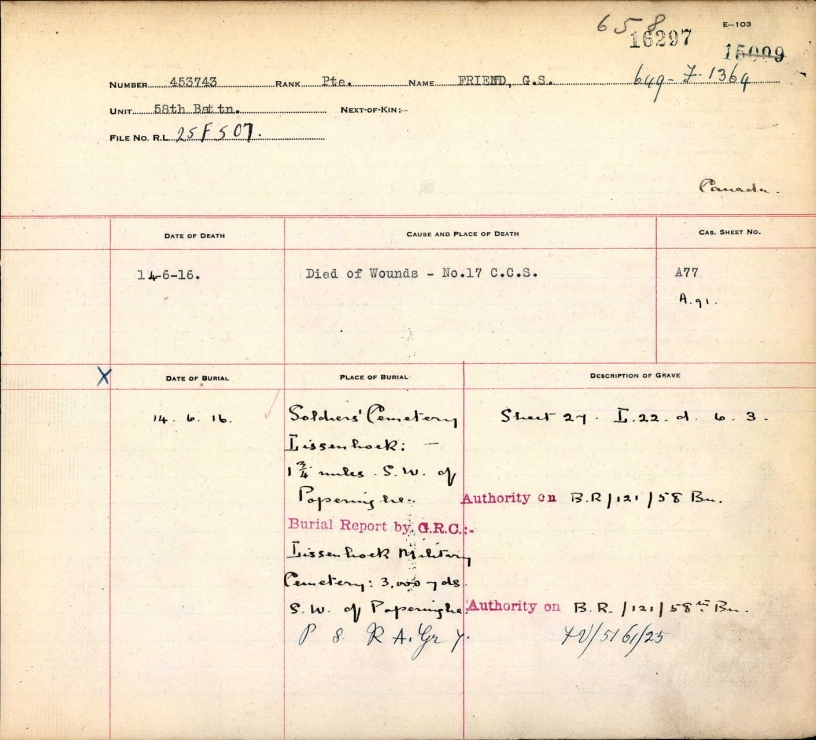 658
E-103
16297
15009
NUMBER 453743 RANK Pte. NAME FRIEND, G.S. 649-F-1364
UNIT 58th Battn. NEXT-OF-KIN:-
FILE NO. R.L. 25 F 507.
Canada.
DATE OF DEATH CAUSE AND PLACE OF DEATH CAS. SHEET NO.
14-6-16. Died of Wounds - No.17 C.C.S. A77
A.91.
X DATE OF BURIAL PLACE OF BURIAL DESCRIPTION OF GRAVE
14. 6. 16. Soldiers' Cemetery Sheet 27. L.22. d. 6. 3.
Lissenhoek: -
1 3/4 miles. S.W. of
Poperinghe. Authority on B.R/121/58 Bn.
Burial Report by G.R.C.:-
Lissenhoek Military
Cemetery: 3,000 yds.
S.W. of Poperinghe. Authority on B.R./121/58th Bn.
P 8. R A. Gr 7. /5161/25